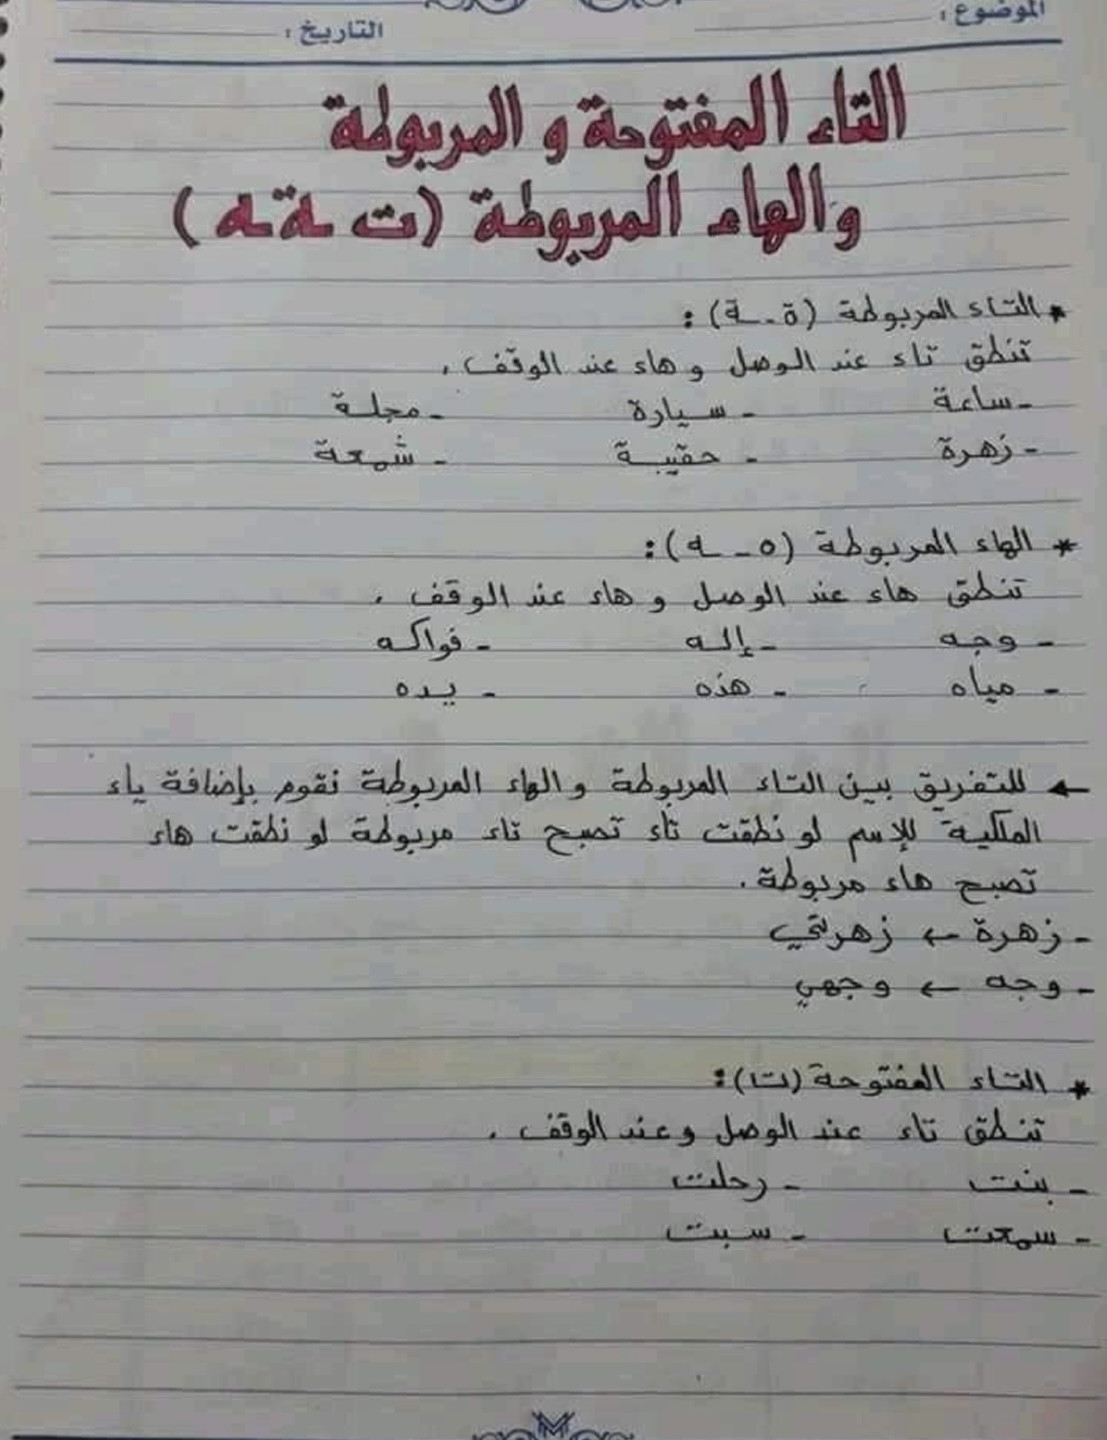 الموضوع :
التاريخ :
التاء المفتوحة و المربوطة
والهاء المربوطة (ت ـة ـه)
* التاء المربوطة (ة ـ ـة) :
تنطق تاء عند الوصل و هاء عند الوقف .
- ساعة - سيارة - مجلة
- زهرة - حقيبة - شمعة
* الهاء المربوطة (ه ـ ـه) :
تنطق هاء عند الوصل و هاء عند الوقف .
- وجه - إله - فواكه
- مياه - هذه - يده
← للتفريق بين التاء المربوطة و الهاء المربوطة نقوم بإضافة ياء
الملكية للإسم لو نطقت تاء تصبح تاء مربوطة لو نطقت هاء
تصبح هاء مربوطة .
- زهرة ← زهرتي
- وجه ← وجهي
* التاء المفتوحة (ت) :
تنطق تاء عند الوصل وعند الوقف .
- بنت - رحلت
- سمعت - سبت